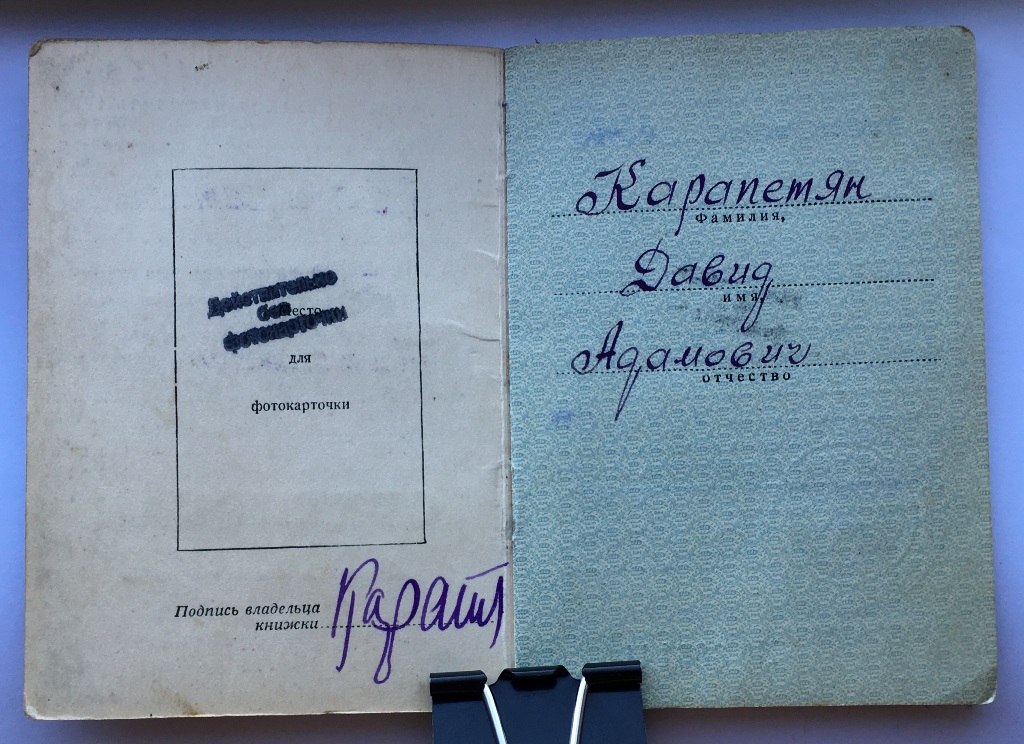 Действительно
без
фотокарточки
место
для
фотокарточки
Подпись владельца
книжки
Карапет
Карапетян
Фамилия,
Давид
имя,
Адамович
отчество